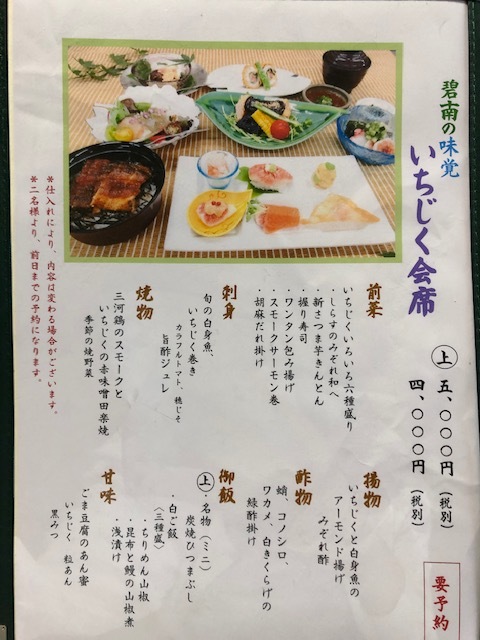 碧南の味覚
いちじく会席
上 五、〇〇〇円（税別）
四、〇〇〇円（税別）
要予約
前菜
いちじくいろいろ六種盛り
・しらすのみぞれ和へ
・新さつま芋きんとん
・握り寿司
・ワンタン包み揚げ
・スモークサーモン巻
・胡麻だれ掛け
刺身
旬の白身魚、
いちじく巻き
カラフルトマト、穂じそ
旨酢ジュレ
焼物
三河鶏のスモークと
いちじくの赤味噌田楽焼
季節の焼野菜
揚物
いちじくと白身魚の
アーモンド揚げ
みぞれ酢
酢物
蛸、コノシロ、
ワカメ、白きくらげの
緑酢掛け
御飯
上・名物（ミニ）
炭焼ひつまぶし
・白ご飯
（三種盛）
・ちりめん山椒
・昆布と鰻の山椒煮
・浅漬け
甘味
ごま豆腐のあん蜜
いちじく 粒あん
黒みつ
＊仕入れにより、内容は変わる場合がございます。
＊二名様より、前日までの予約になります。